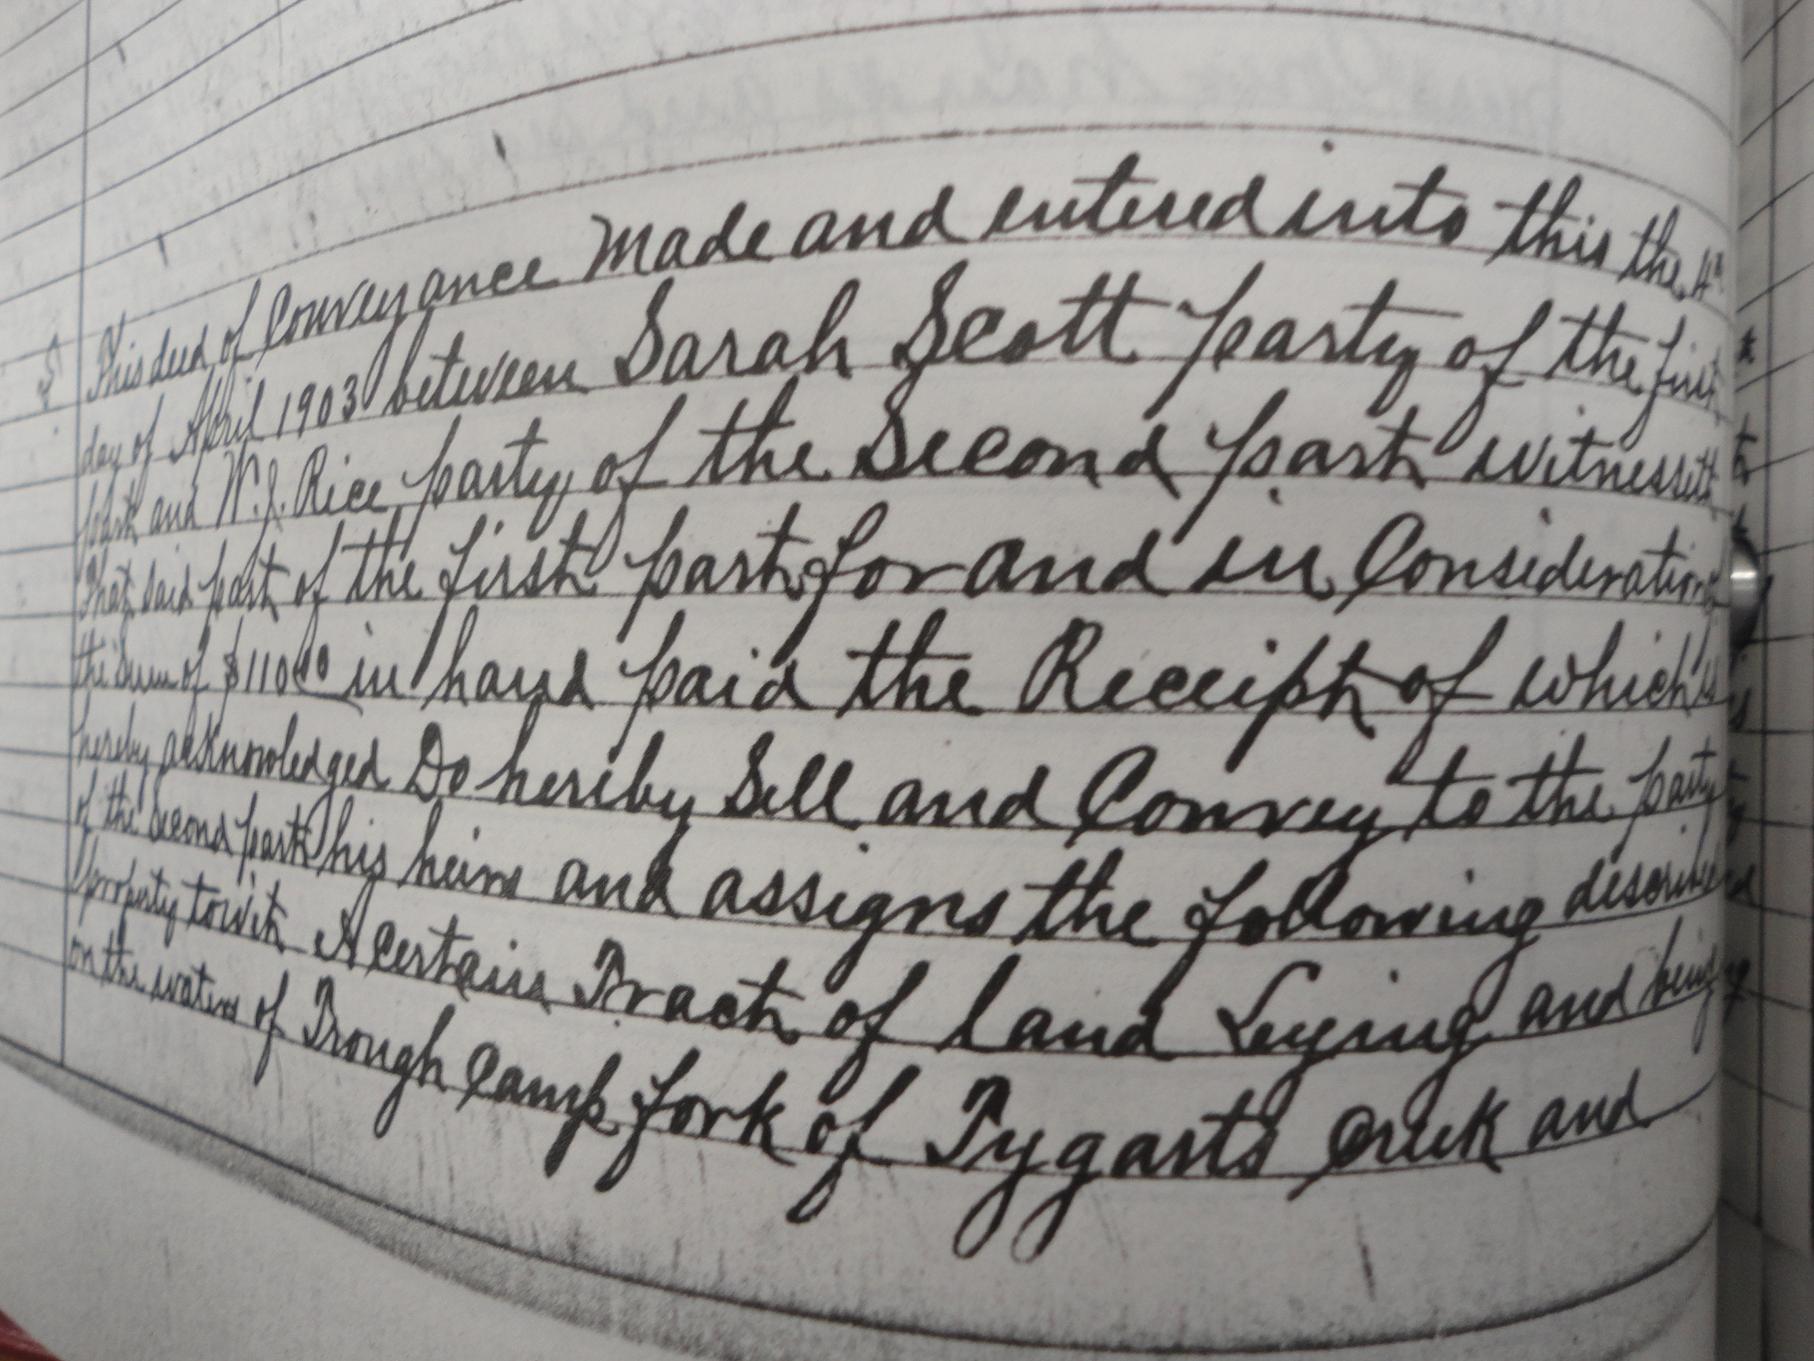 This deed of Conveyance Made and entered into this the 4th
day of April 1903 between Sarah Scott party of the first
part and W.J. Rice party of the Second part witnesseth
That said part of the first part for and in Consideration of
the Sum of $110 00 in hand paid the Receipt of which is
hereby acknowledged Do hereby Sell and Convey to the party
of the Second part his heirs and assigns the following described
property towit A certain Tract of land Leying and being
on the waters of Trough Camp fork of Tygarts Creek and